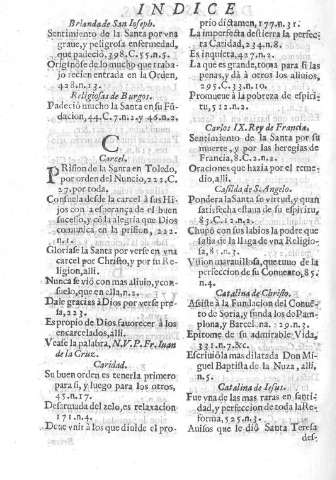 INDICE
Brianda de San Ioseph.
Sentimiento de la Santa por vna
graue, y peligrosa enfermedad,
que padeció, 398.C.55.n.5.
Originòse de lo mucho que traba-
jo recien entrada en la Orden,
428.n.23.
Religiosas de Burgos.
Padeciò mucho la Santa en su Fú-
dacion, 44.C.7.n.2.y 46.n.2.
C
Carcel.
PRision de la Santa en Toledo,
por orden del Nuncio, 222.C.
27.por toda.
Consuela desde la carcel à sus Hi-
jos con a esperança de el buen
sucesso, y cõ la alegria que Dios
comunica en la prision, 222.
n.1.
Gloriase la Santa por verse en vna
carcel por Christo, y por su Re-
ligion, alli.
Nunca se viò con mas aliuio, y con-
suelo, que en ella, n.2.
Dale gracias à Dios por verse pre-
sa, 223.
Es propio de Dios fauorecer à los
encarcelados, alli.
Vease la palabra, N.V.P. Fr. Iuan
de la Cruz.
Caridad.
Su buen orden es tenerla primero
para si, y luego para los otros,
45.n.17.
Desnuda del zelo, es relaxacion
171.n.4.
Deue vnir à los que diuide el pro-
prio dictamen, 177.n.31.
La imperfecta destierra la perfec-
ta Caridad, 234.n.8.
Es inquieta, 427.n.2.
La que es grande, toma para si las
penas, y dà à otros los aliuios,
295.C.33.n.10.
Promueue à la pobreza de espiri-
tu, 512.n.2.
Carlos IX. Rey de Francia.
Sentimiento de la Santa por su
muerte, y por las heregias de
Francia, 8.C.2.n.2.
Oraciones que hazia por el reme-
dio, alli.
Casilda de S. Angelo.
Pondera la Santa su virtud, y quan
satisfecha estaua de su espiritu,
83.C.12.n.2.
Chupò con sus labios la podre que
salia de la llaga de vna Religio-
sa, 87.n.3.
Vision marauillosa, que tuuo de la
perfeccion de su Conuento, 85.
n.4.
Catalina de Christo.
Assiste à la Fundacion del Conuẽ-
to de Soria, y funda los de Pam-
plona, y Barcelna. 129.n.3.
Epitome de su admirable Vida,
331.n.7.&c.
Escriuiòla mas dilatada Don Mi-
guel Baptista de la Nuza, alli,
n.5.
Catalina de Iesus.
Fue vna de las mas raras en santi-
dad, y perfeccion de toda la Re-
forma, 525.n.3.
Auisos que le diò Santa Teresa
des-